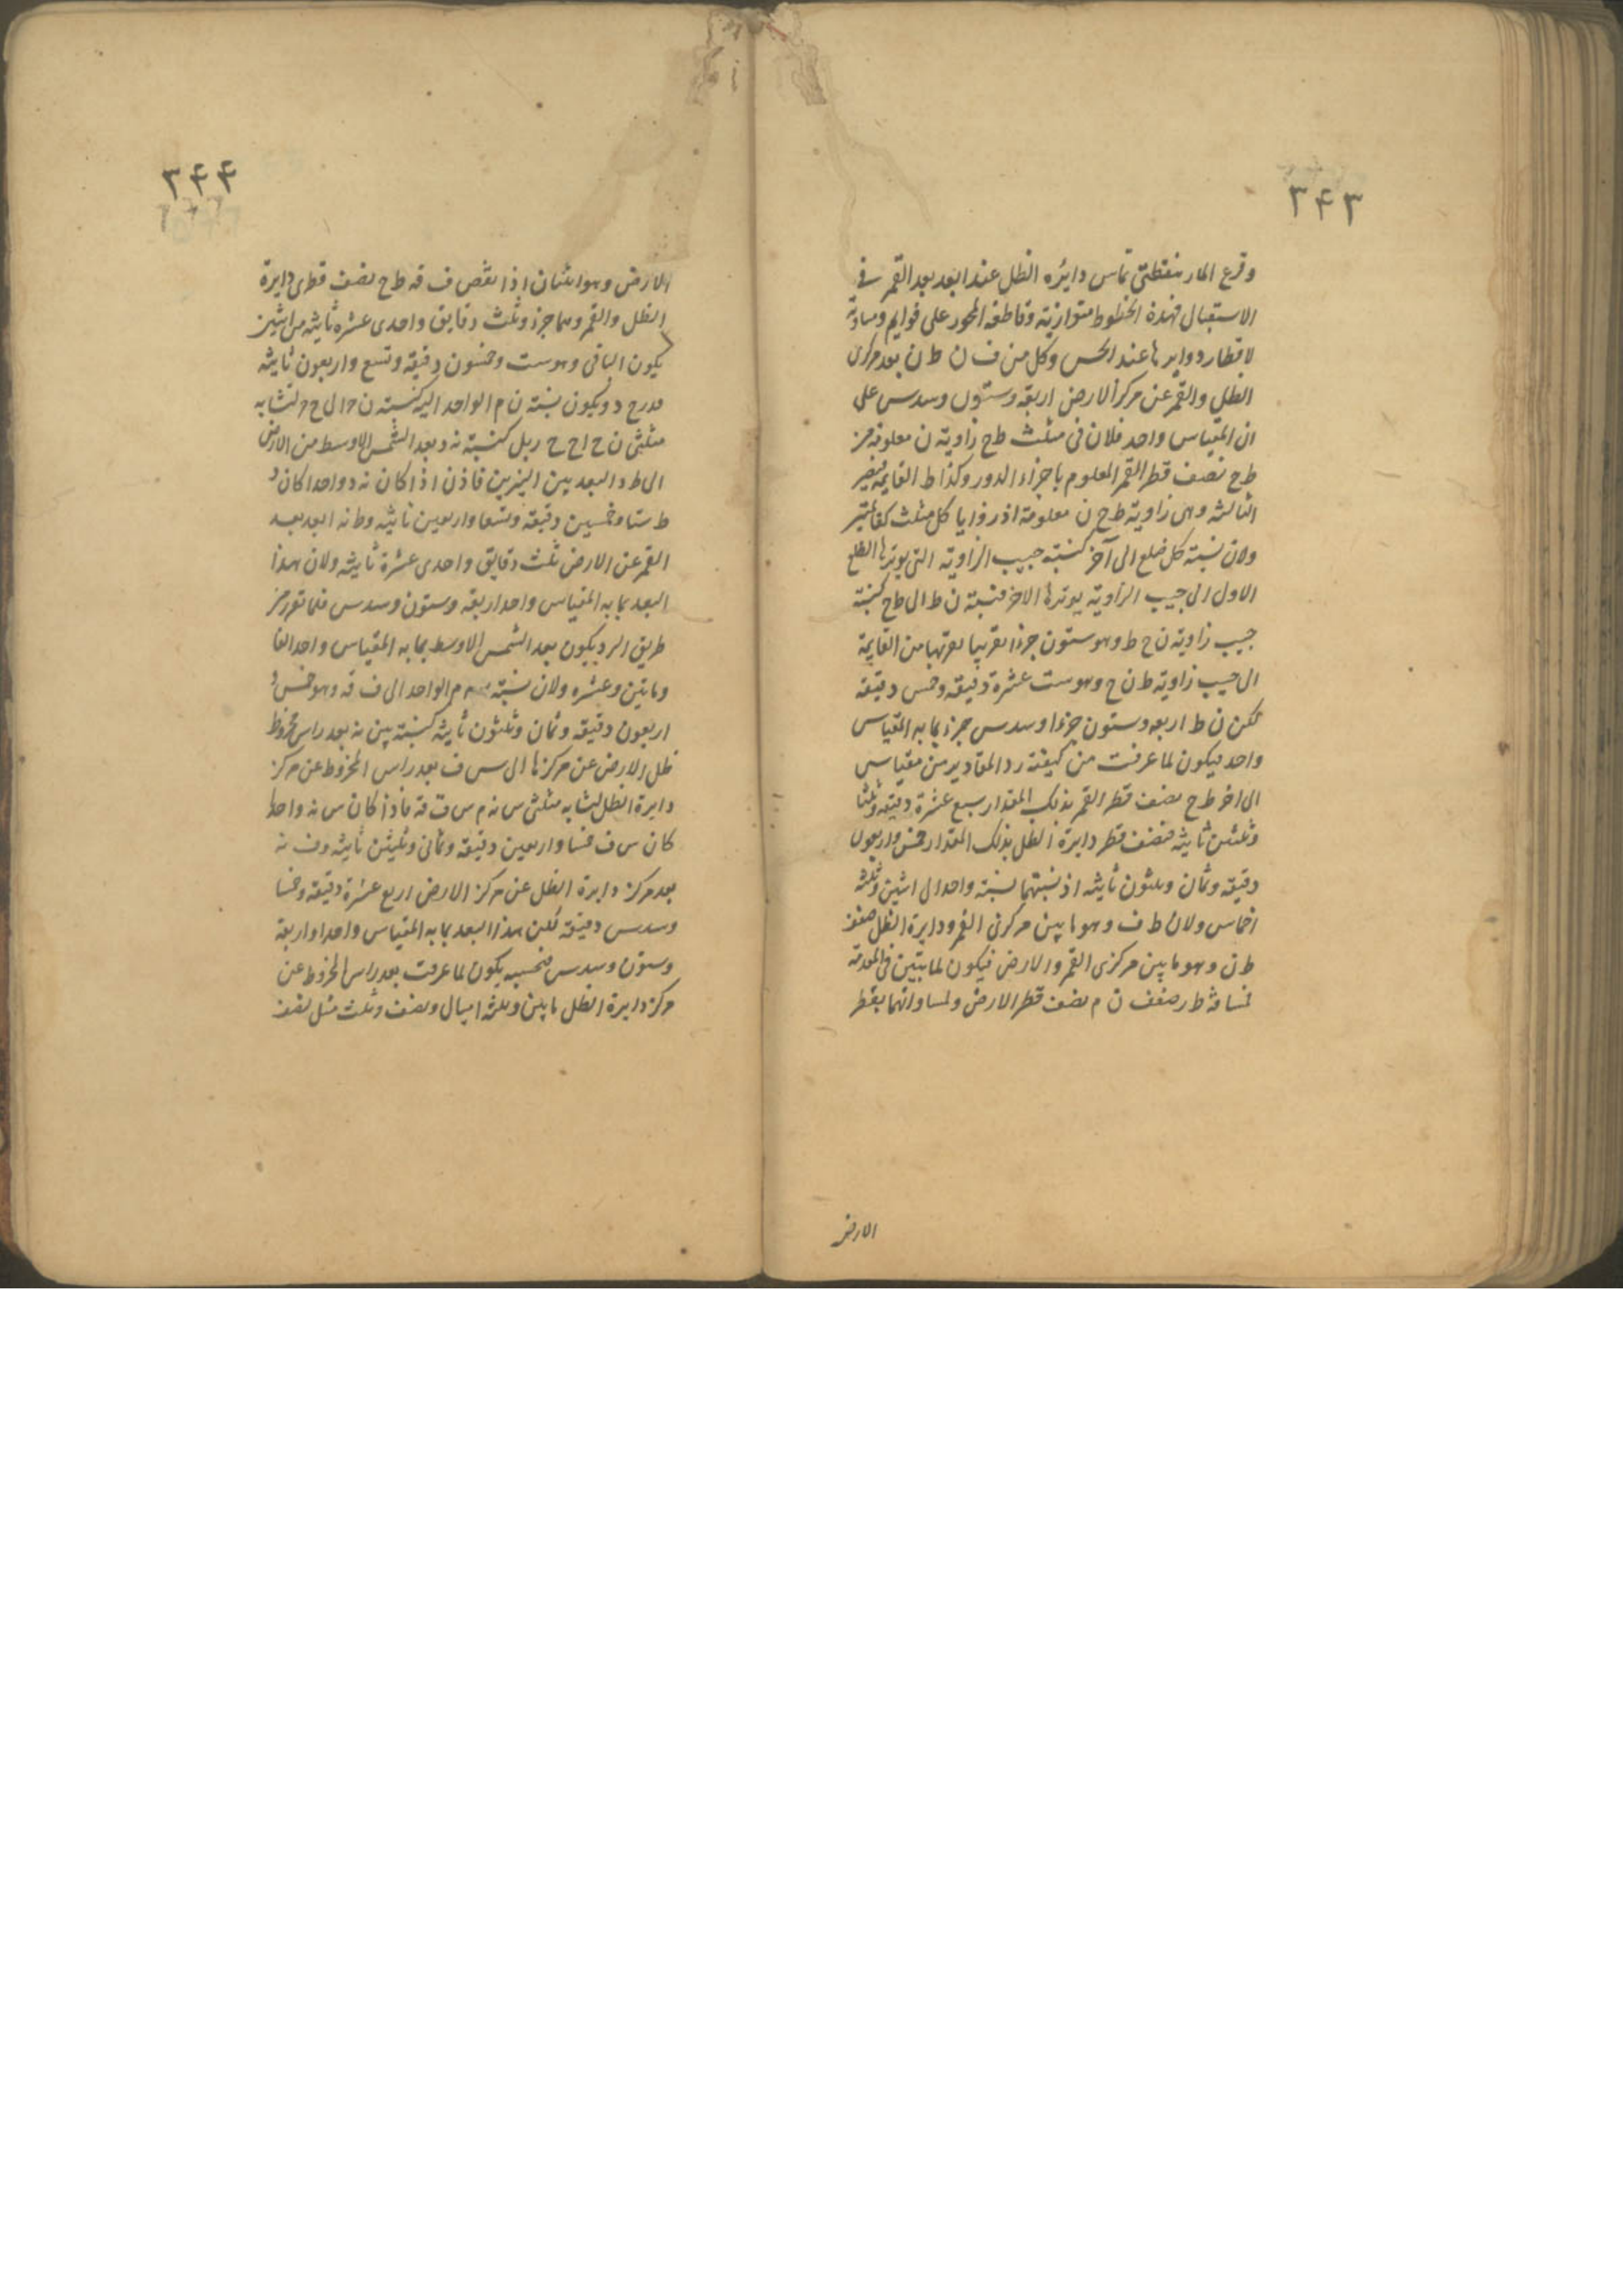 ٣٤٣
وقرع المار بنقطتى تماس دايره الظل عند ابعد بعد القمر فى
الاستقبال فهذة الخطوط متوازية وقاطعة المحور على قوايم ومساوية
لاقطار دوايرها عند الحس وكل من ف ن ط ن بعد مركزى
الظل والقمر عن مركز الارض اربعة وستون وسدس على
ان المقياس واحد فلان فى مثلث ط ح زاوية ن معلومة من
ط ح نصف قطر القمر المعلوم باجزاء الدور وكذا ط القايمة فيصير
الثالثة وهى زاوية ط ح ن معلومة اذ زوايا كل مثلث كقائمتين
ولان نسبة كل ضلع الى آخر كنسبة جيب الزاوية التى يوترها الضلع
الاول الى جيب الزاوية يوترها الاخر فنسبة ن ط الى ط ح كنسبة
جيب زاوية ن ح ط وهو ستون جزءا تقريبا لقربها من القايمة
الى جيب زاوية ط ن ح وهو ست عشرة دقيقه وخمس دقيقة
لكن ن ط اربعه وستون جزءا وسدس جزء بما به المقياس
واحد فيكون لما عرفت من كيفية رد المقادير من مقياس
الى اخر ط ح نصف قطر القمر بذلك المقدار سبع عشرة دقيقة وثلثا
وثلثين ثانية فنصف قطر دايرة الظل بذلك المقدار خمس واربعون
دقيقة وثمان وثلثون ثانيه اذ نسبتهما نسبة واحد الى اثنين وثلثة
اخماس ولان ط ف وهو ما بين مركزى القمر ودايرة الظل ضعف
ط ن وهو ما بين مركزى القمر والارض فيكون لما تبين فى المقدمة
ط ر ضعف ن م نصف قطر الارض ولمساواتهما بقطر
الارض
٣٤٤
الارض وهو اثنان اذا نقص ف قه ط ح نصف قطرى دايرة
الظل والقمر وهما جزء وثلث دقايق واحدى عشره ثانية من اثنين
يكون الباقى وهو ست وخمسون دقيقة وتسع واربعون ثانية
ح ر ويكون نسبة ن م الواحد اليه كنسبة ن ح الى ح ر لتشابه
مثلثى ن ح ا ح ح ر بل كنسبة نه د بعد الشمس الاوسط من الارض
الى ط د البعد بين النيرين فاذن اذا كان نه د واحدا كان د
ط ستا وخمسين دقيقة وتسعا واربعين ثانية وط نه ابعد بعد
القمر عن الارض ثلث دقايق واحدى عشرة ثانية ولان هذا
البعد بما به المقياس واحد اربعة وستون وسدس فلما تقرر من
طريق الرد يكون بعد الشمس الاوسط بما به المقياس واحد الفا
ومايتين وعشره ولان نسبة نه م الواحد الى ف قه وهو خمس و
اربعون دقيقة وثمان وثلثون ثانية كنسبة بين نه بعد راس مخروط
ظل الارض عن مركزها الى س ف بعد راس المخروط عن مركز
دايرة الظل لتشابه مثلثى س نه م س ف قه فاذا كان س نه واحدا
كان س ف خمسا واربعين دقيقة وثمانى وثلثين ثانية وف نه
بعد مركز دايرة الظل عن مركز الارض اربع عشرة دقيقة وخمسا
وسدس دقيقة لكن هذا البعد بما به المقياس واحدا واربعة
وستون وسدس فبحسبه يكون لما عرفت بعد راس المخروط عن
مركز دايرة الظل مايتين وثلثة اميال ونصف وثلث مثل لنصف